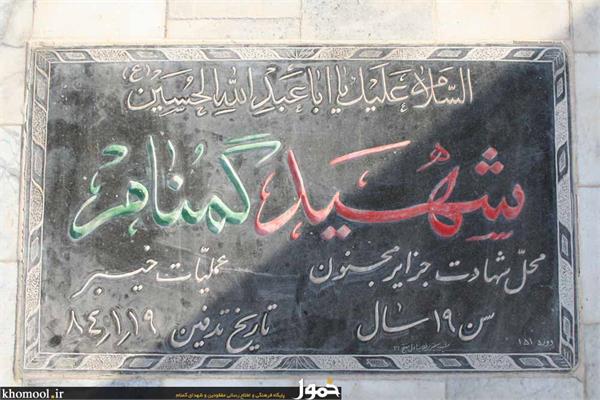 السلام علیک یا اباعبدالله الحسین (ع)
شهید گمنام
محل شهادت جزایر مجنون عملیّات خیبر
سن ۱۹ سال تاریخ تدفین ۸۴٫۱٫۱۹
دوره ۱۵۱
khomool.ir
پایگاه فرهنگی و اطلاع رسانی مفقودین و شهدای گمنام
خمول
khomool.ir